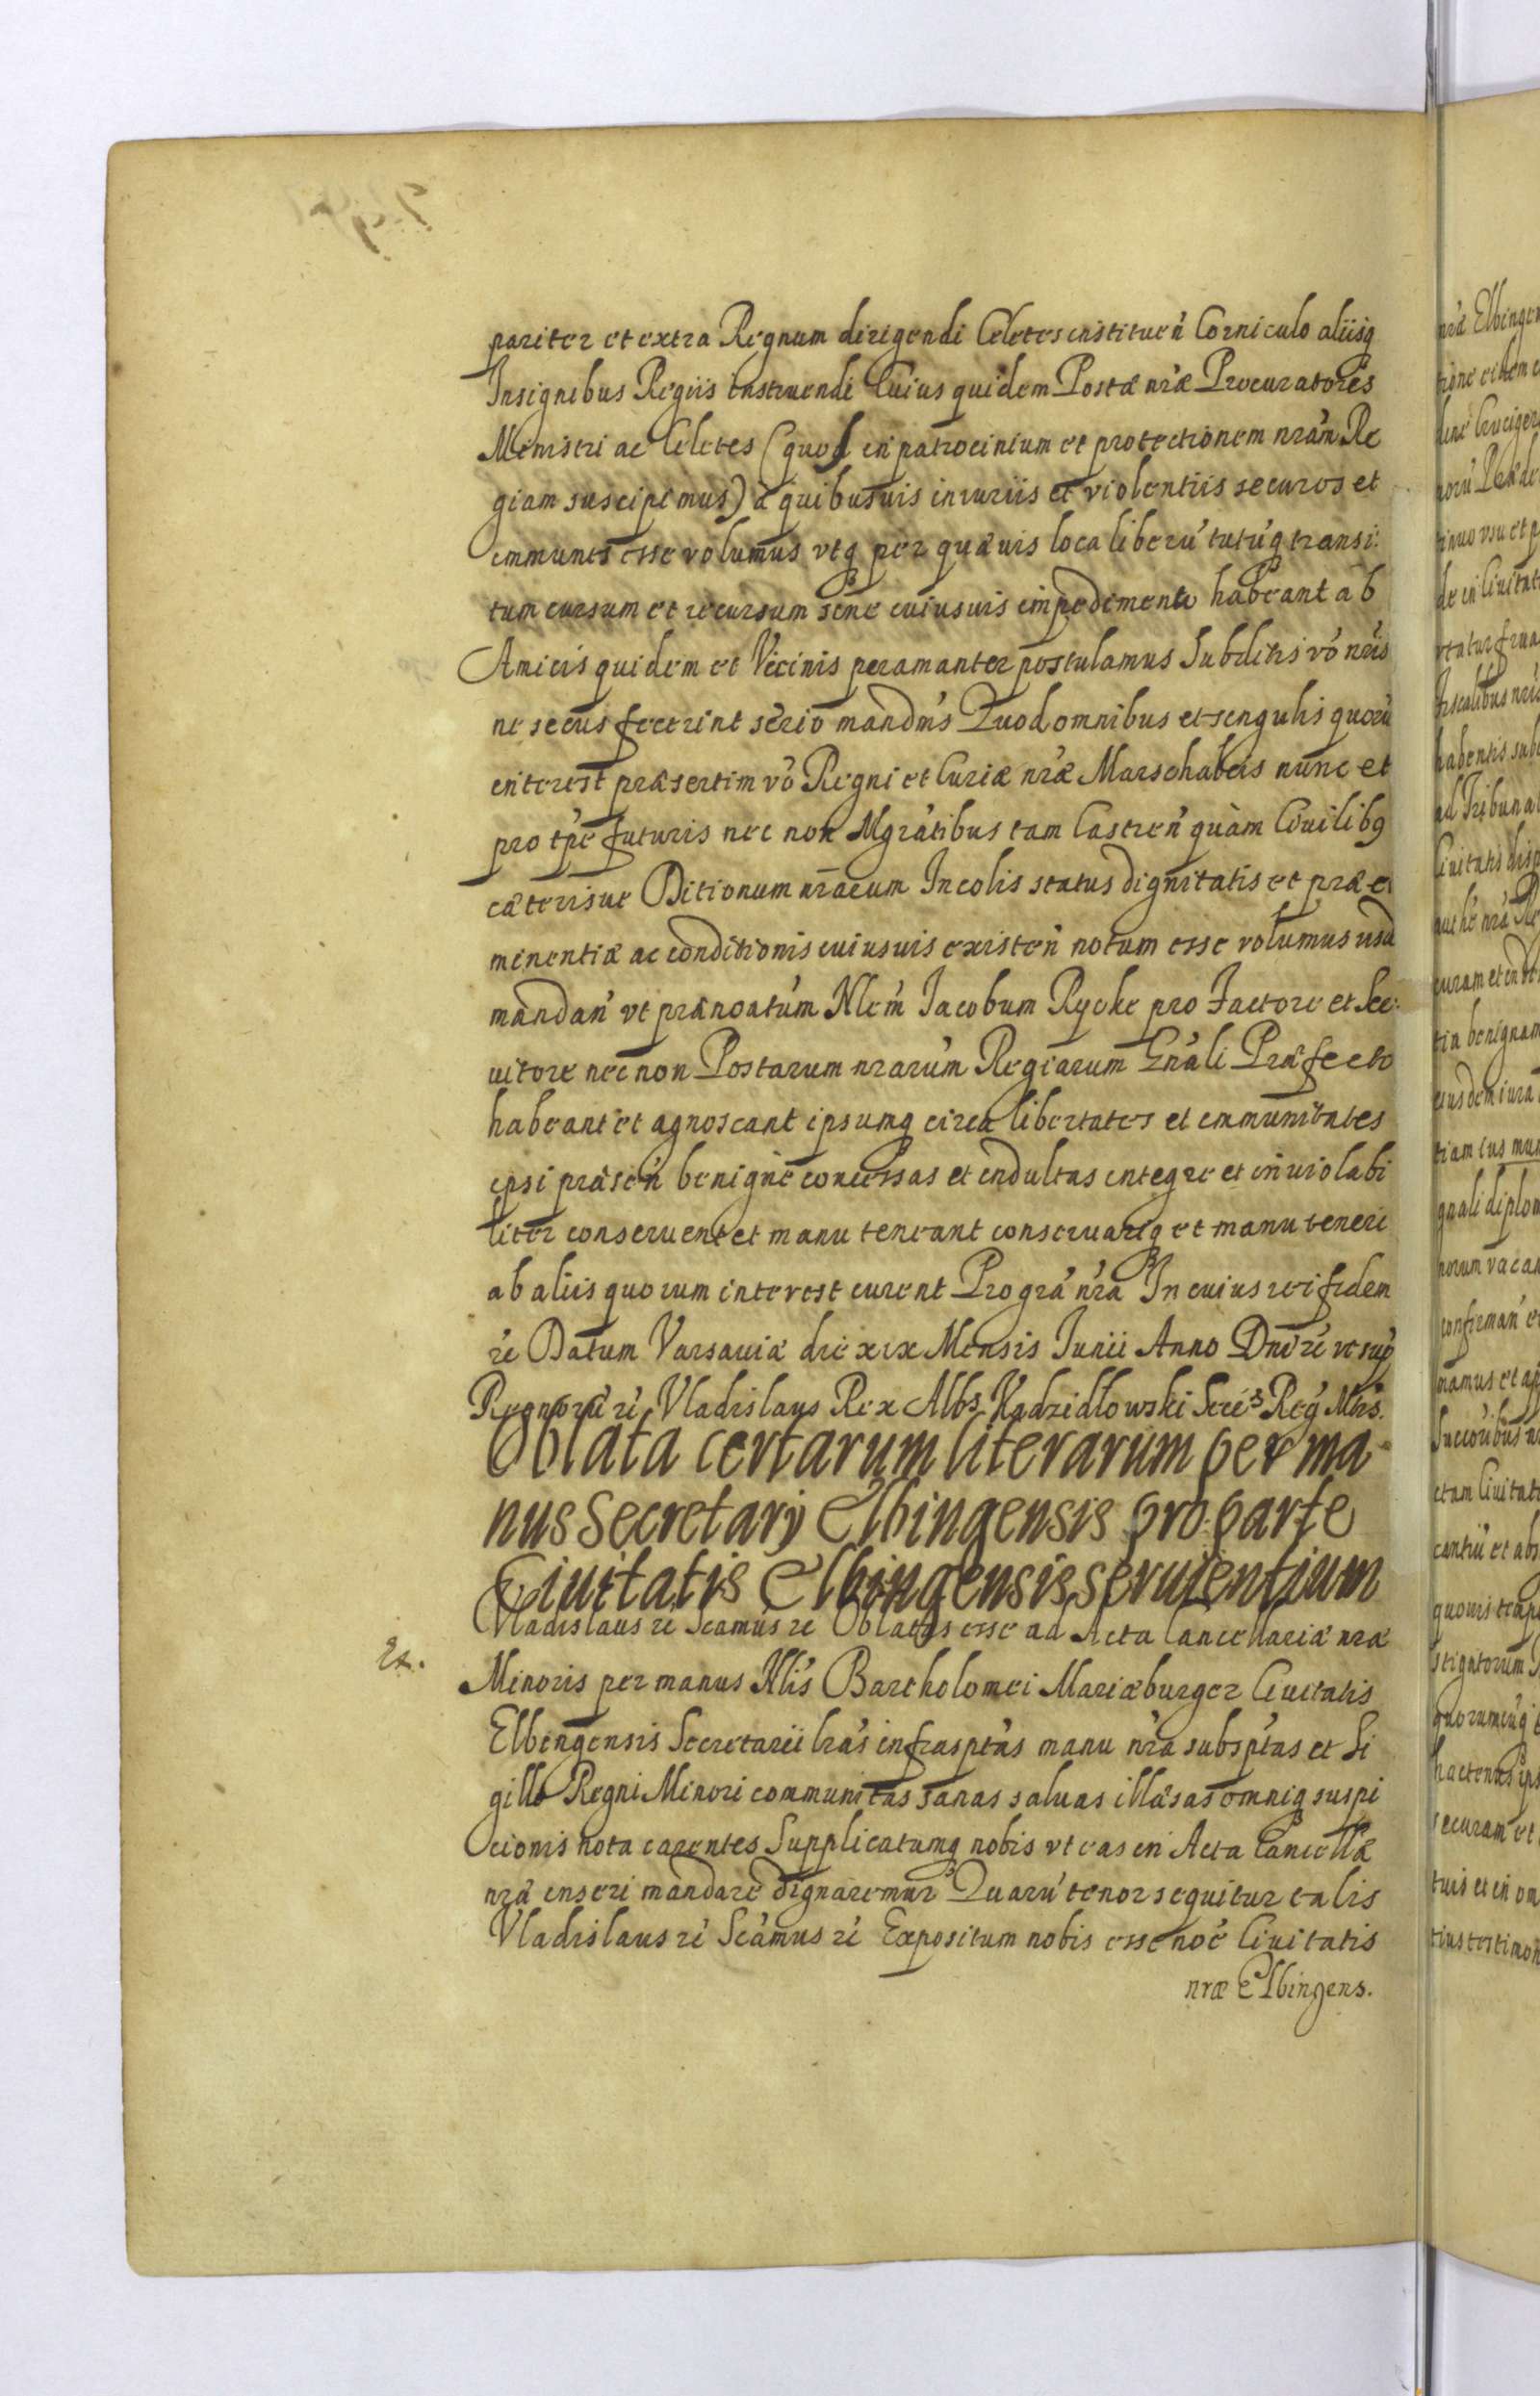 pariter et extra Regnum dirigendi Celetes instituen̄ Corniculo aliisq
Insignibus Regiis instruendi Cuius quidem Postæ nrǽ Procuratores
Ministri ac Celetes (quos in patrocinium et protectionem nrám Re
giam suscipimus) à quibusuis iniuriis et violentiis securos et
immunes esse volumus vtq per quæuis loca liberú tutúq transi:
tum cursum et recursum sine cuiusuis impedimento habeant ab
Amicis quidem et Vicinis peramanter postulamus Subditis vó nrís
ne secus fecerint serió mandm̃s Quod omnibus et singulis quorú
interest præsertim vó Regni et Curiæ nrǽ Marschalcis nunc et
pro tṕe futuris nec non Mgrátibus tam Castren̄ quàm Ciuilibq
cæterisue Ditionum nrárum Incolis status dignitatis et præe
minentiæ ac conditionis cuiusuis existen̄ notum esse volumus
mandan̄ vt prænoatúm Nlem̃ Iacobum Rycke pro Factore et Ser:
uitore nec non Postarum nrarúm Regiarum Gnáli Præfecto
habeant et agnoscant ipsumq circa libertates et immunitates
ipsi præsen̄ benigne concessas et indultas integre et inuiolabi
liter conseruent et manu teneant conseruariq et manu teneri
ab aliis quorum interest curent Pro grá nrá In cuius rei fidem
ré Datum Varsauiæ die xix Mensis Iunii Anno Dní ré vt sup
Regnorú ré Vladislaus Rex Albs Kadzidlowski Secrs Reg Mtis.
Oblata certarum literarum per ma-
nus Secretarij Elbingensis pro parte
Ciuitatis Elbingensis seruientium
Vladislaus ré Scamus ré Oblatas esse ad Acta Cancellariæ nræ
Minoris per manus Nlis Bartholomei Mariæburger Ciuitatis
Elbingensis Secretarii lrás infrasptás manu nrá subsptás et Si
gillo Regni Minori communitas sanas saluas illæsas omniq suspi
cionis nota carentes Supplicatumq nobis vt eas in Acta Cancellæ
nrǽ inseri mandare dignaremur Quarú tenor sequitur talis
Vladislaus ré Scámus ré Expositum nobis esse noé Ciuitatis
nræ Elbingens.